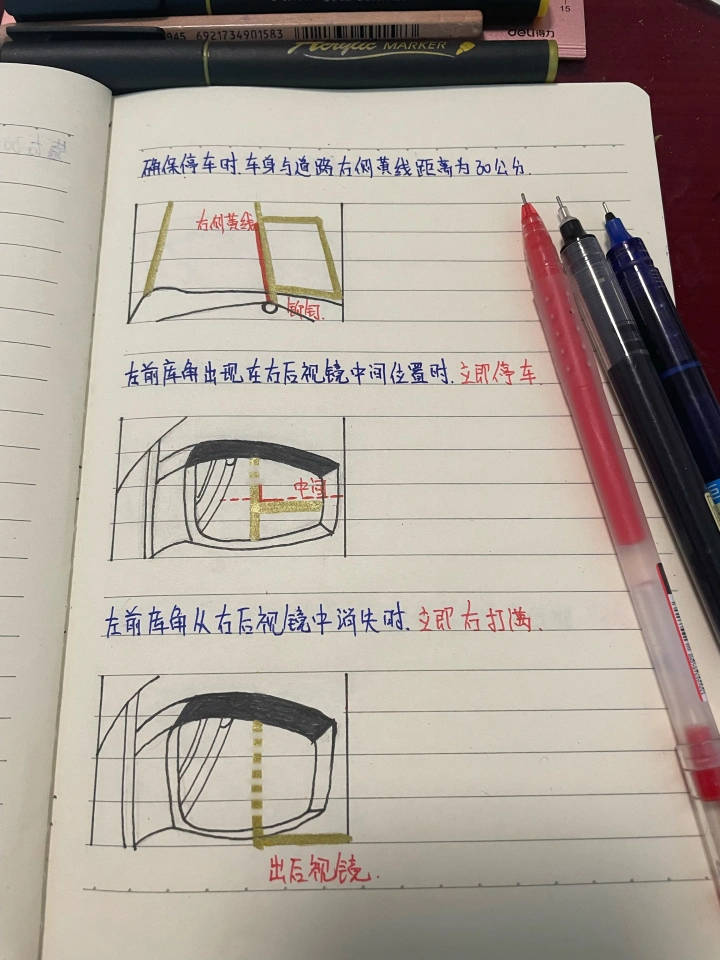 15
945 6921734901583
deli得力
Acrylic MARKER
确保停车时.车身与道路右侧黄线距离为30公分.
右侧黄线
铆钉.
左前库角出现在右后视镜中间位置时.立即停车.
中间
左前库角从右后视镜中消失时.立即右打满.
出后视镜.